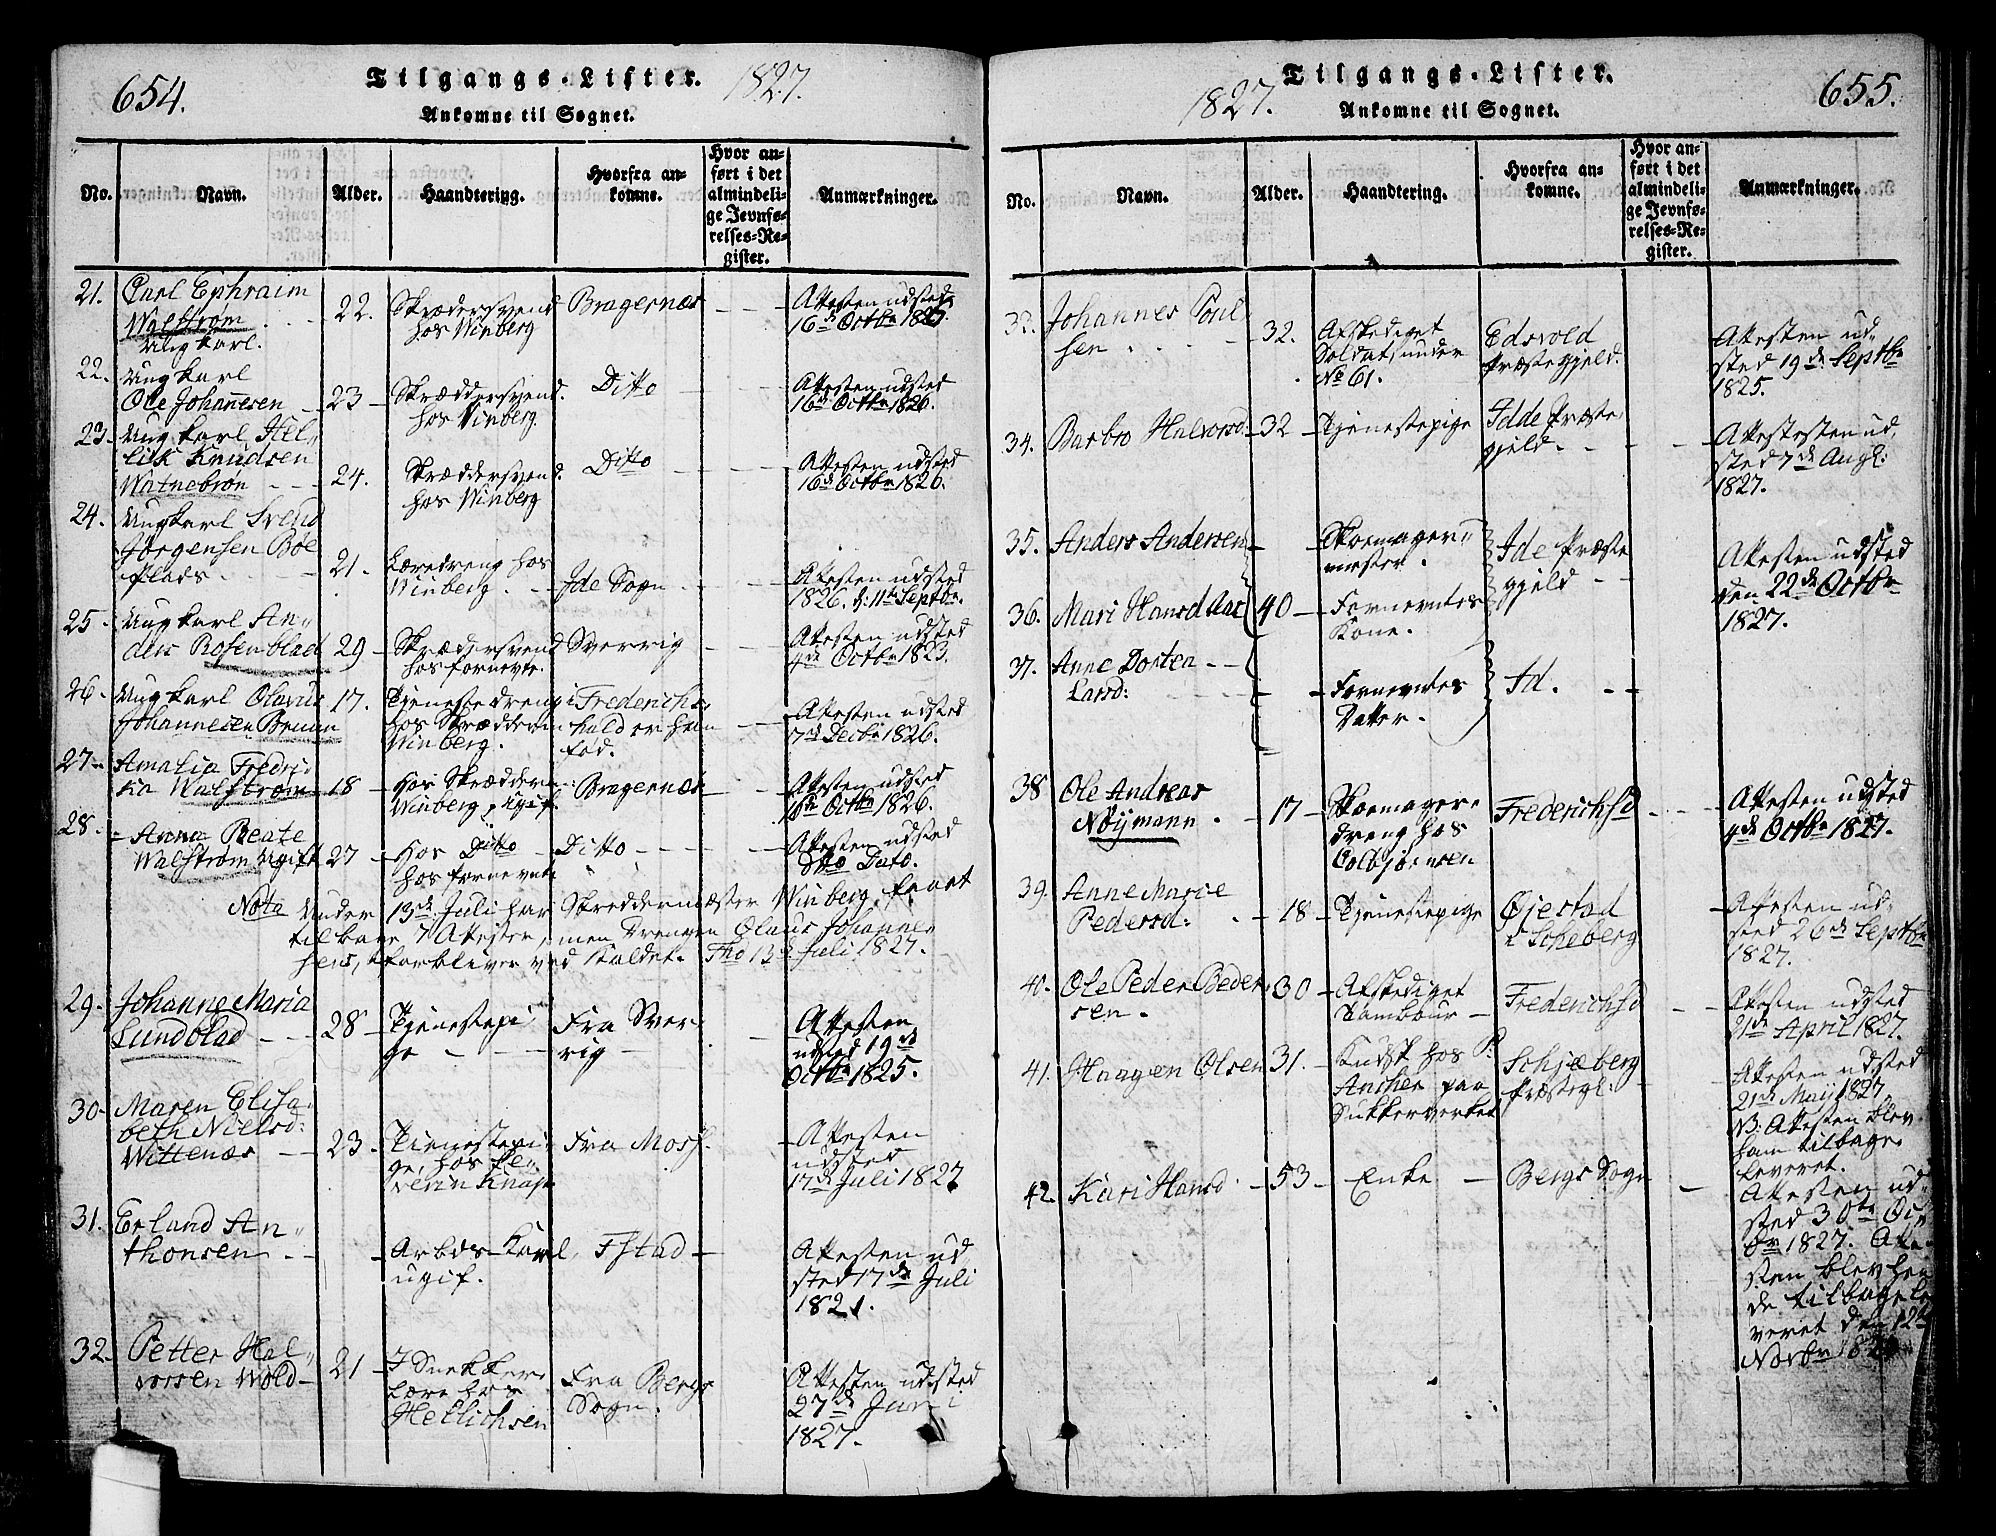 654.
Tilgangs-Lister. 1827.
Ankomne til Sognet.
No. Navn. Alder. Haandtering. Hvorfra ankomne. Hvor anført i det almindelige Jevnførelses-Register. Anmærkninger.
21. Carl Ephraim
Walstrøm
Ungkarl. 22. Skrædersvend
hos Winberg Bragernæs Attesten udsted
16de Octbr 1827.
22. Ungkarl
Ole Johannesen 23 Skræddersvend
hos Winberg Ditto Attesten udsted
16de Octbr 1826.
23. Ungkarl
Knudsen
Watnebron 24. Skræddersvend
hos Winberg Ditto Attesten udsted
16de Octbr 1826.
24. Ungkarl Svend
Jørgensen Bøe
Plads 21. Læredreng hos
Winberg Ide Sogn Attesten udsted
1826. d: 11te Septbr.
25. Ungkarl An-
ders Rosenblad 29 Skræddersvend
hos fornevte. Sverrig Attesten udsted
4de Octbr 1823.
26. Ungkarl Olavus
Johannesen Bruun 17. Tjenestedreng
hos Skrædderen
Winberg. i Frederichs-
hald er han
fød. Attesten udsted
7de Decbr 1826.
27. Amalia Fredri-
ka Walstrøm 18 Hos Skrædder
Winberg, ugift. Bragernæs Attesten udsted
16de Octbr 1826.
28. Anna Beate
Walstrøm ugift 27 Hos Ditto
hos fornevnte Ditto Attesten udsted
dtto Dato.
Nota Under 13de Juli har Skreddermæster Winberg faaet
tilbage 7 Attester, men Drengen Olaus Johanne-
sens, forbliver ved Kaldet. Fhd 13de Juli 1827.
29. Johanne Maria
Lundblad 28 Tjenestepi-
ge Fra Sver-
rig Attesten
udsted 19de
Octbr 1825.
30. Maren Elisa-
beth Nielsd:
Wittenæs 23. Tienestepi-
ge, hos
Knap Fra Moss. Attesten
udsted
17de Juli 1827
31. Erland An-
thonsen Arbds-Karl,
ugif. Fstad Attesten ud
sted 17de Juli
1821.
32. Petter Hal-
vorsen Wold 21 I Snekker-
lære hos
Hellichsen Fra Bergs
Sogn. Attesten udsted
27de Juni
1827.
655.
1827. Tilgangs-Lister.
Ankomne til Sognet.
No. Navn. Alder. Haandtering. Hvorfra ankomne. Hvor anført i det almindelige Jevnførelses-Register. Anmærkninger.
33. Johannes Poul
sen 32. Afskediget
Soldat under
No 61. Edsvold
Præstegjeld. Attesten ud-
sted 19de Septbr
1825.
34. Barbro Halvorsd 32 Tjenestepige Idde Præste
gjeld. Attestesten ud,
sted 7de Augt:
1827.
35. Anders Andersen Skoemager-
mester. Ide Præste
gjeld Attesten udsted
den 22de Octbr
1827.
36. Mari Hansdatter 40 Fornevntes
Kone.
37. Anne Dortea
Larsd: Fornevntes
Datter. Id.
38 Ole Andreas
Nøijmann 17 Skoemager-
dreng hos
Colbjørnsen Frederichsd Attesten udsted
4de Octbr 1827.
39. Anne Marie
Pedersd: 18 Tjenestepige Øjestad
i Scheberg Attesten ud-
sted 26de Septbr
1827.
40. Ole Peder Peder-
sen. 30 Afskediget
Tambour Frederichsd Attesten udsted
21de April 1827.
41. Haagen Olsen 31. Kudsk hos P:
Ancher paa
Sukkerverket Schjeberg
Præstegl: Attesten udsted
21de Maij 1827.
NB: Attesten blev
ham tilbage-
leveret.
42. Kari Hansd 53 Enke Bergs Sogn Attesten ud-
sted 30te Oc
br 1827. Atte-
sten blev hen
de tilbagele-
veret den 12te
Novbr